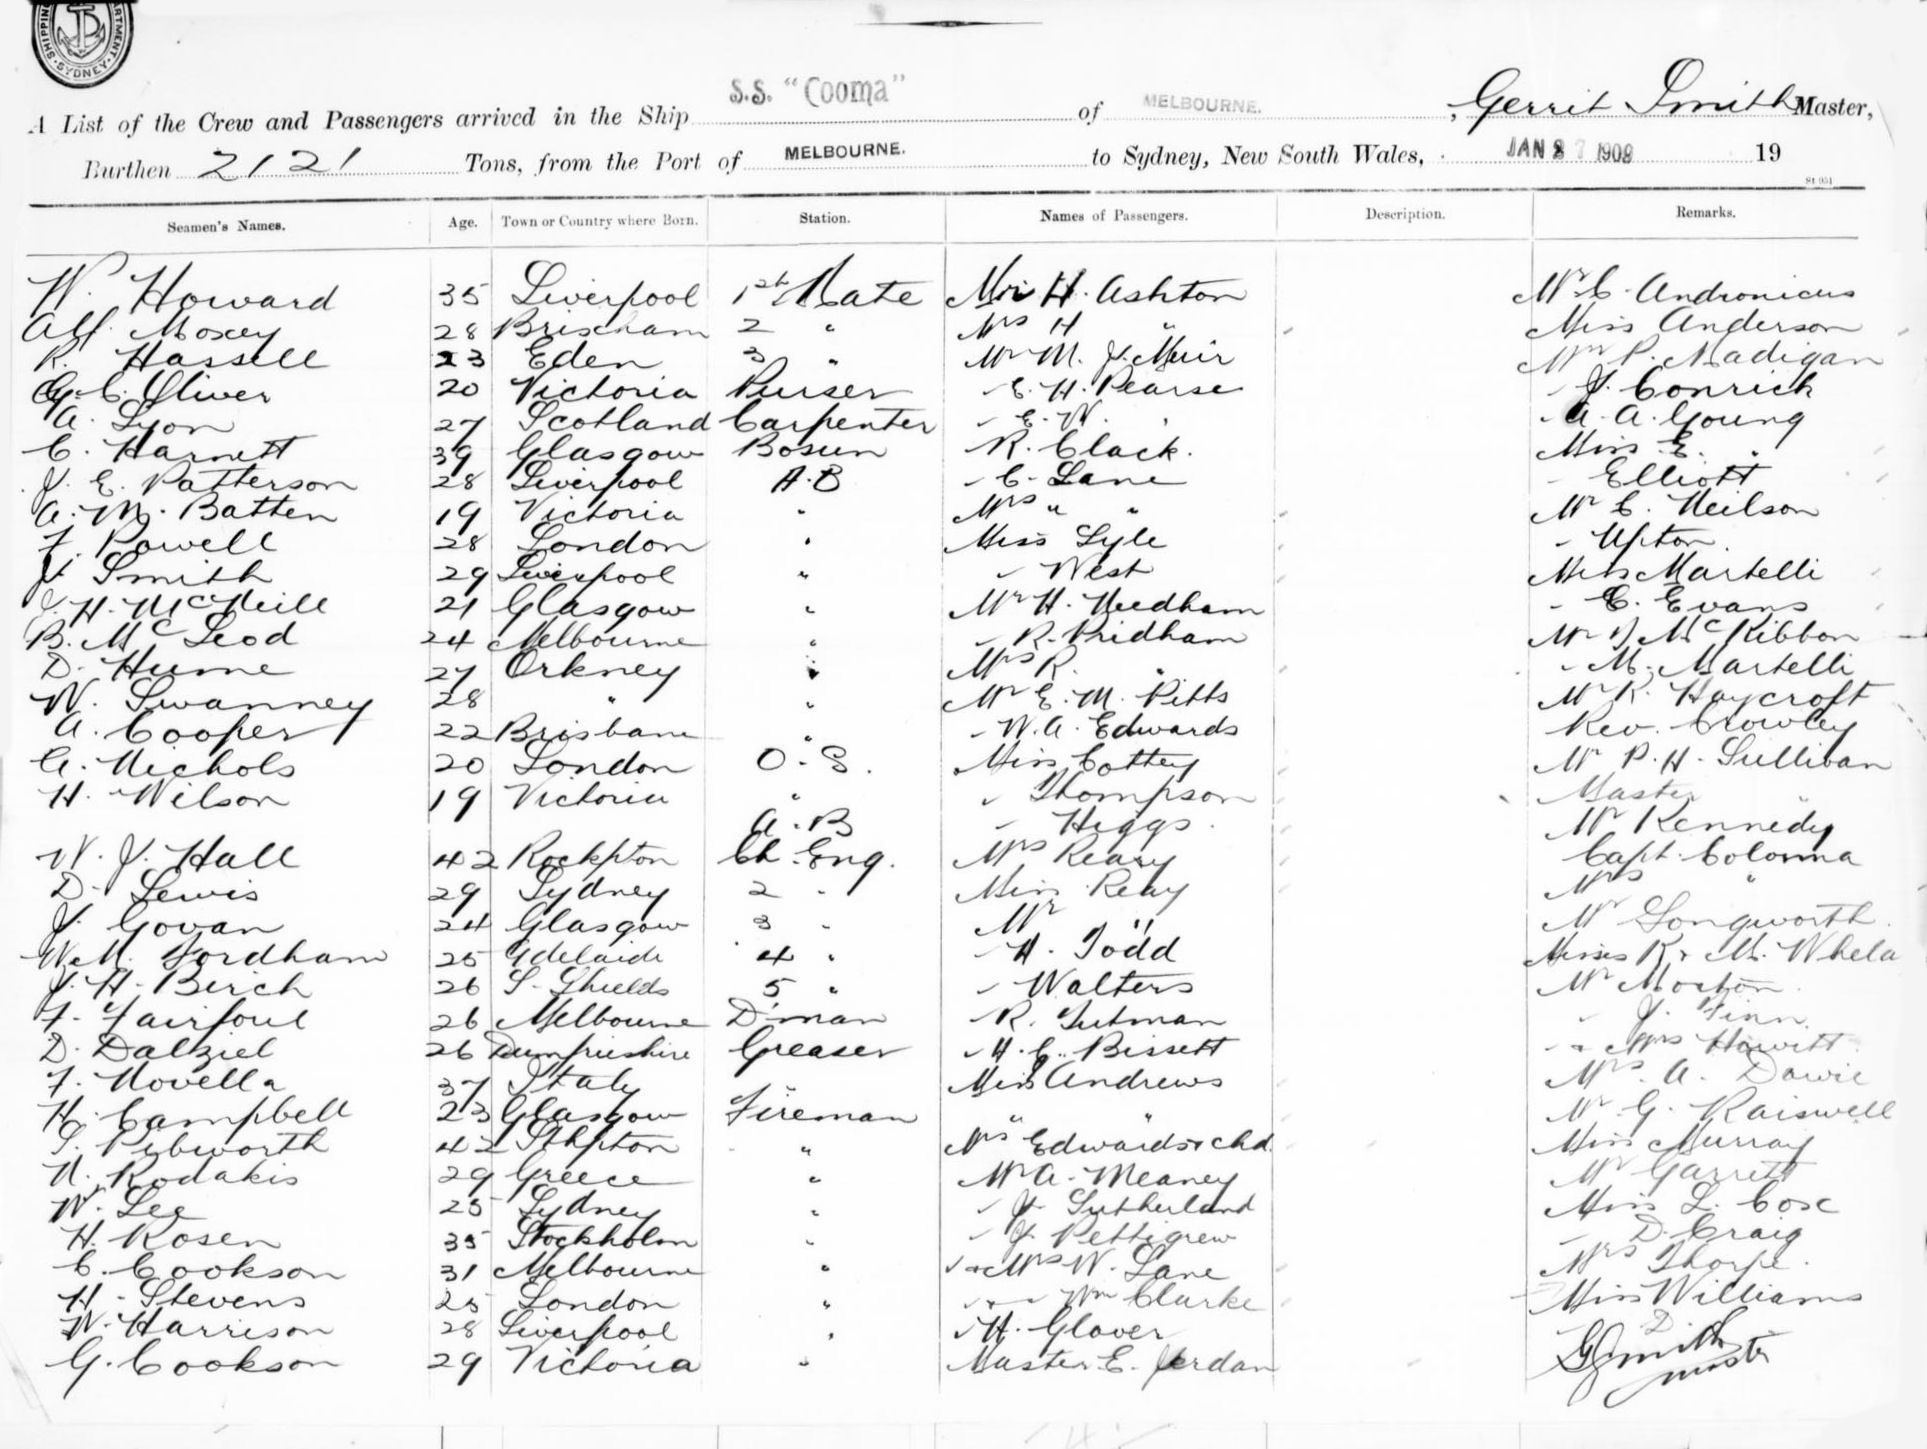 SHIPPING DEPARTMENT SYDNEY
A List of the Crew and Passengers arrived in the Ship S.S. "Cooma" of MELBOURNE. , Gerrit Smith Master,
Burthen 2121 Tons, from the Port of MELBOURNE. to Sydney, New South Wales, JAN 27 1909 19
St 951
Seamen's Names. Age. Town or Country where Born. Station. Names of Passengers. Description. Remarks.
W. Howard 35 Liverpool 1st Mate H. Ashton Mr C. Andronicus
Alf. Moxey 28 Brixham 2 " Mrs H " Miss Anderson
R. Hassell 23 Eden 3 " Mr M. J. Muir Mr P. Madigan
G. C. Oliver 20 Victoria Purser - E. H. Pearse - J. Conrick
A. Lyon 27 Scotland Carpenter - E. W. " - A. A. Young
C. Harnett 39 Glasgow Bosun - R. Clack. Miss E. "
J. E. Patterson 28 Liverpool A.B - C. Lane - Elliott
A. M. Batten 19 Victoria " Mrs " " Mr C. Neilson
F. Powell 28 London " Miss Lyle - Upton
J. Smith 29 Liverpool " - West Miss Martelli
J. H. McNeill 21 Glasgow " Mr H. Needham - E. Evans
B. McLeod 24 Melbourne " - R. Pridham Mr J McKibbon
D. Hume 27 Orkney " Mrs R. " - M. Martelli
W. Swanney 28 " " Mr E. M. Pitts Mr R. Haycroft
A. Cooper 22 Brisbane " - W. A. Edwards Rev. Crowley
G. Nichols 20 London O.S. Miss Cottey Mr P. H. Sullivan
H. Wilson 19 Victoria " - Thompson Master "
A.B - Higgs Mr Kennedy
W. J. Hall 42 Rockpton Ch. Eng. Mrs Reary Capt. Colonna
D. Lewis 29 Sydney 2 " Miss Reay Mrs "
J. Govan 24 Glasgow 3 " Mr " Mr Longworth
W. M. Fordham 25 Adelaide 4 " - H. Todd Misses K. & M. Whela
J. H. Birch 26 S. Shields 5 " - Walters Mr Morton
F. Fairfoul 26 Melbourne D'man - R. Tutman - J. Finn
D. Dalziel 26 Dumfrieshire Greaser - H. C. Bissett - & Mrs Howitt
F. Novella 37 Italy " Miss Andrews Mrs A. Dowie
H. Campbell 23 Glasgow Fireman " " Mr G. Raiswell
S. Pibworth 42 Sthpton " Mrs Edwards & chd. Miss Murray
N. Rodakis 29 Greece " Mr A. Meaney Mr Garrett
W. Lee 25 Sydney " - J. Sutherland Miss L. Cox
H. Rosen 35 Stockholm " - J. Pettigrew - D. Craig
C. Cookson 31 Melbourne " - & Mrs W. Lane Mrs Thorpe
H. Stevens 25 London " - & - Wm Clarke Miss Williams
W. Harrison 28 Liverpool " - H. Glover
G. Cookson 29 Victoria " Master E. Jordan G Smith master